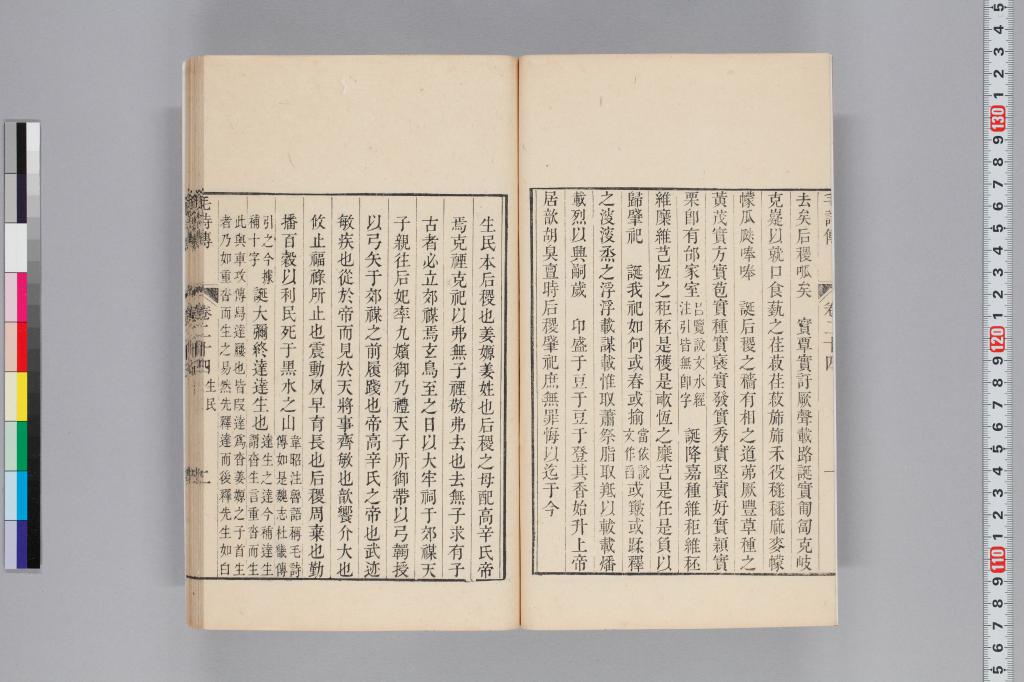 去矣后稷呱矣　實覃實訏厥聲載路誕實匍匐克岐
克嶷以就口食蓺之荏菽荏菽旆旆禾役穟穟麻麥幪
幪瓜瓞唪唪　誕后稷之穡有相之道茀厥豐草種之
黃茂實方實苞實種實褎實發實秀實堅實好實穎實
栗卽有邰家室呂覽說文水經注引皆無卽字　誕降嘉種維秬維秠
維穈維芑恆之秬秠是穫是畝恆之穈芑是任是負以
歸肇祀　誕我祀如何或舂或揄當依說文作舀或簸或蹂釋
之浚浚烝之浮浮載謀載惟取蕭祭脂取羝以軷載燔
載烈以興嗣歲　卬盛于豆于豆于登其香始升上帝
居歆胡臭亶時后稷肇祀庶無罪悔以迄于今
毛詩傳　卷二十四　一
生民本后稷也姜嫄姜姓也后稷之母配高辛氏帝
焉克禋克祀以弗無子禋敬弗去也去無子求有子
古者必立郊禖焉玄鳥至之日以大牢祠于郊禖天
子親往后妃率九嬪御乃禮天子所御帶以弓韣授
以弓矢于郊禖之前履踐也帝高辛氏之帝也武迹
敏疾也從於帝而見於天將事齊敏也歆饗介大也
攸止福祿所止也震動夙早育長也后稷周棄也勤
播百穀以利民死于黑水之山韋昭注魯語稱毛詩傳如是魏志杜畿傳
引之今據補十字　誕大彌終達生也達生之達今補達生謂沓生言重沓而生
此與車攻傳舄達屨也皆叚達爲沓姜嫄之子首生
者乃如重沓而生之易然先釋達而後釋先生如曰
毛詩傳　卷二十四　生民　二
130
120
110